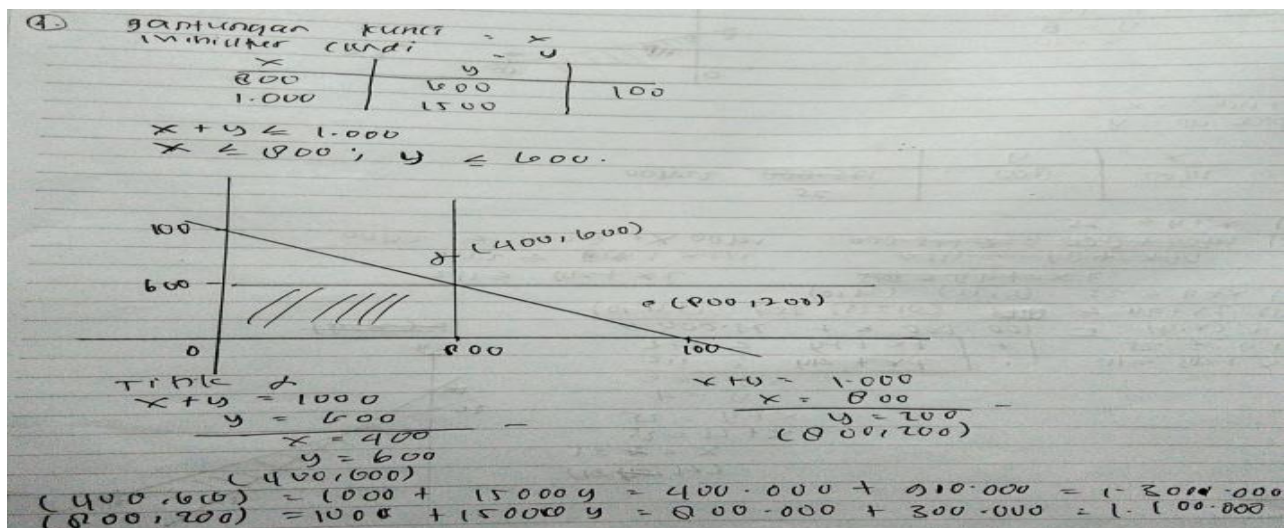 1. gantungan kunci = x
miniatur candi = y
x | y |
800 | 600 | 100
1.000 | 1500
x + y ≤ 1.000
x ≤ 800 ; y ≤ 600.
100
d (400, 600)
600
e (800, 200)
0 800 100
Titik d
x + y = 1000
y = 600 -
x = 400
y = 600
(400, 600)
x + y = 1.000
x = 800 -
y = 200
(800, 200)
(400, 600) = 1000 + 15000 y = 400.000 + 910.000 = 1.3000.000
(800, 200) = 1000 + 15000 y = 800.000 + 300.000 = 1.100.000